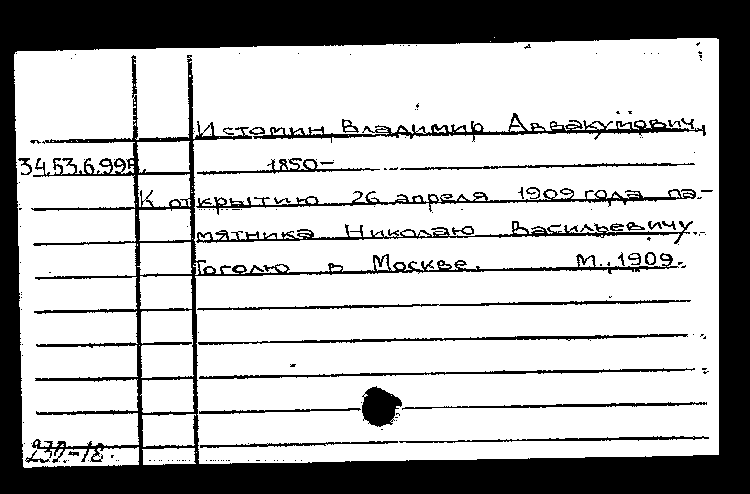 Истомин, Владимир Аввакумович,
34.53.6.995. 1850-
К открытию 26 апреля 1909 года па-
мятника Николаю Васильевичу
Гоголю в Москве. М., 1909.
232-18.